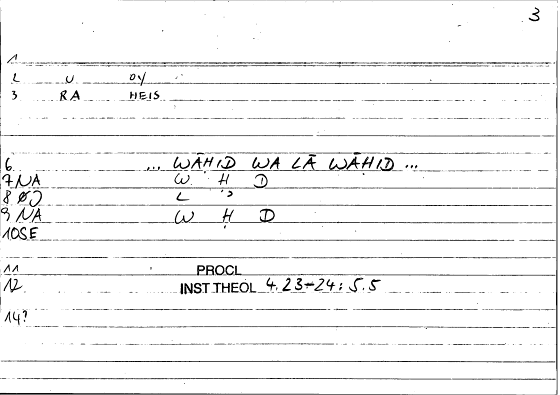 3
1
2 U OY
3 RA HEIS
6 ... WĀḤID WA LĀ WĀḤID ...
7 NA W Ḥ D
8 ØJ L ʾ
9 NA W Ḥ D
10 SE
11 PROCL
12 INST THEOL 4.23-24: 5.5
14?